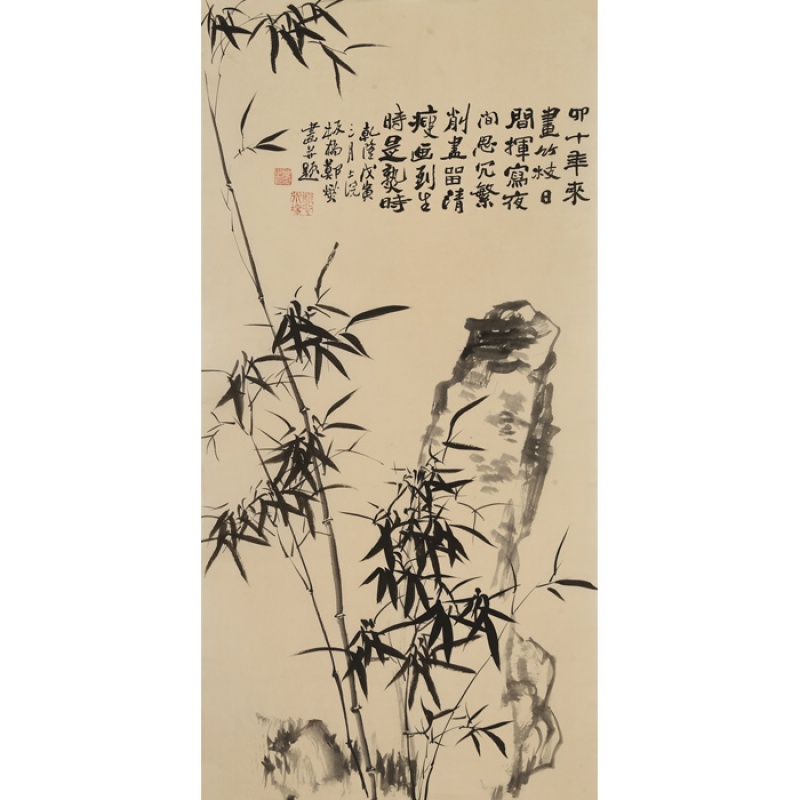 四十年來
畫竹枝日
間揮寫夜
間思冗繁
削盡留清
瘦画到生
時是熟時
乾隆戊寅
三月上浣
板橋鄭燮
畫并題